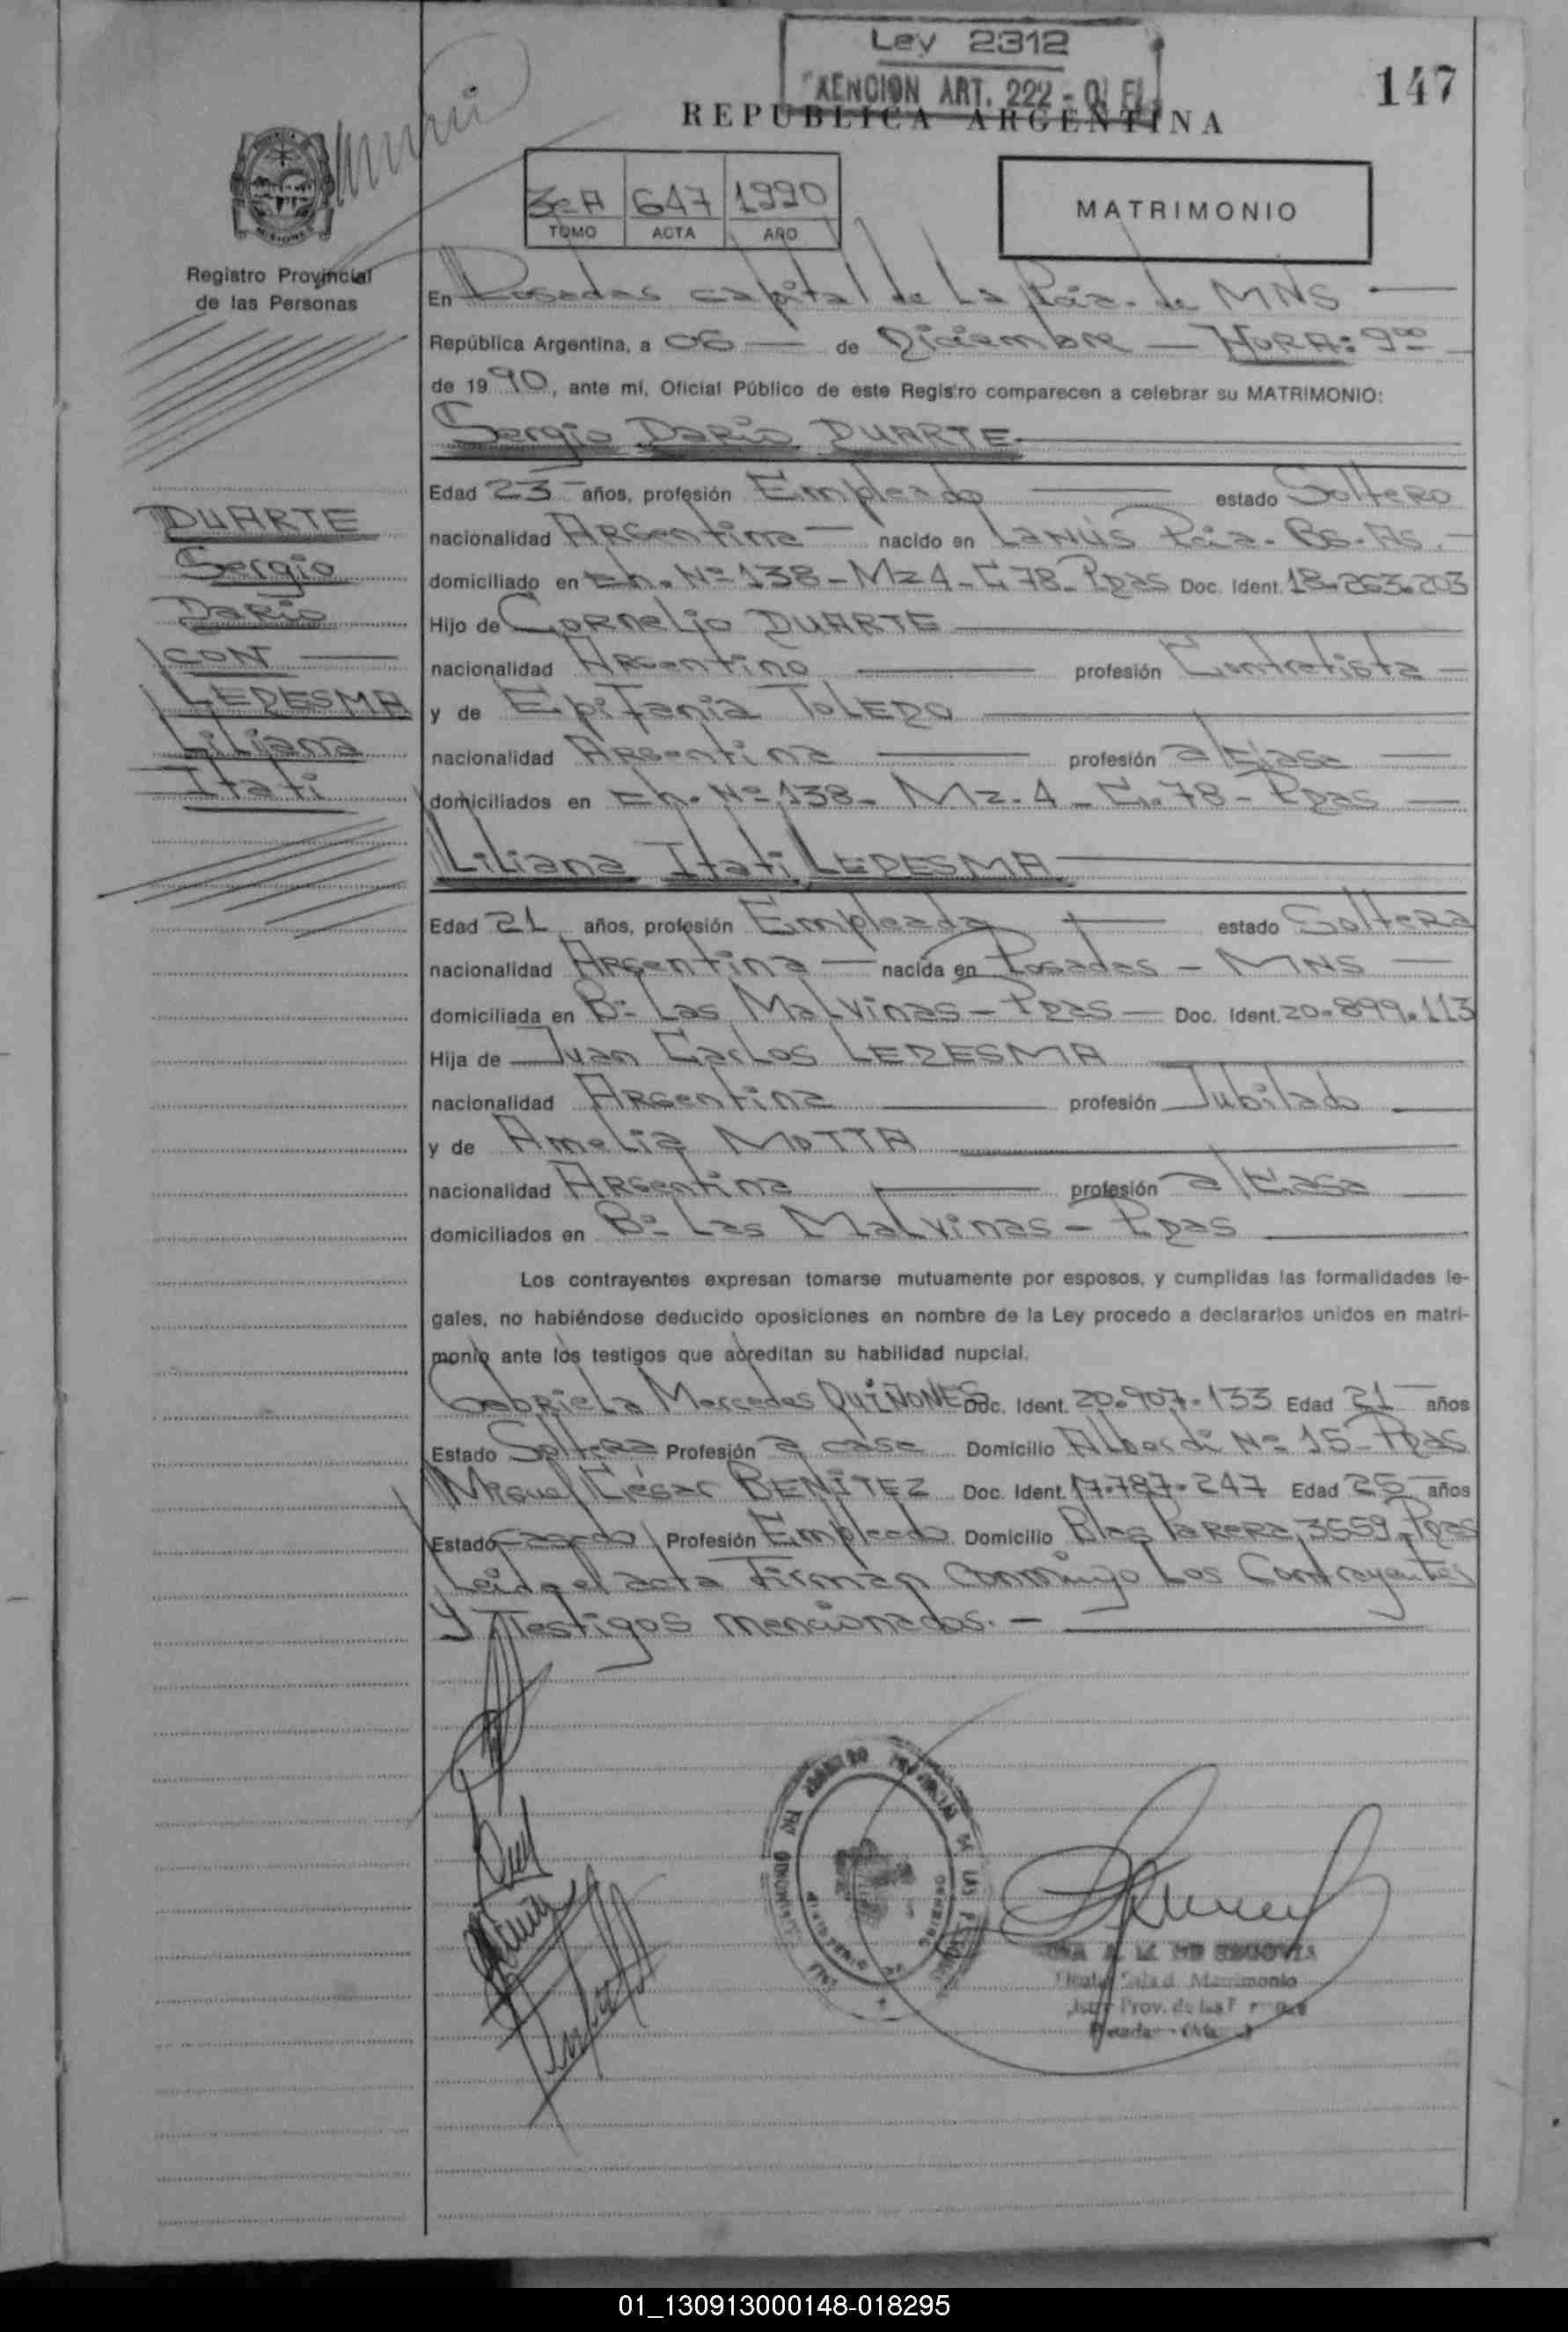 Ley 2312
EXENCION ART. 222 -
147
REPUBLICA ARGENTINA
3eA 647 1990
TOMO ACTA AÑO
MATRIMONIO
MISIONES
Registro Provincial
de las Personas
En Posadas capital de La Pcia. de MNS
República Argentina, a 06 de Diciembre - HORA: 9:00
de 1990, ante mí, Oficial Público de este Registro comparecen a celebrar su MATRIMONIO:
Sergio Dario DUARTE
Edad 23 años, profesión Empleado estado Soltero
nacionalidad Argentina nacido en Lanús Pcia. Bs. As.
domiciliado en Ch. Nº 138 - Mz 4 - C. 78 - Pdas Doc. Ident. 18.263.203
Hijo de Cornelio DUARTE
nacionalidad Argentino profesión Contratista
y de Epifania TOLEDO
nacionalidad Argentina profesión a/casa
domiciliados en Ch. Nº 138 - Mz. 4 - C. 78 - Pdas
DUARTE
Sergio
Dario
CON
LEDESMA
Liliana
Itati
Liliana Itati LEDESMA
Edad 21 años, profesión Empleada estado Soltera
nacionalidad Argentina nacida en Posadas - MNS
domiciliada en Bº Las Malvinas - Pdas Doc. Ident. 20.899.113
Hija de Juan Carlos LEDESMA
nacionalidad Argentina profesión Jubilado
y de Amelia MOTTA
nacionalidad Argentina profesión a/casa
domiciliados en Bº Las Malvinas - Pdas
Los contrayentes expresan tomarse mutuamente por esposos, y cumplidas las formalidades le-
gales, no habiéndose deducido oposiciones en nombre de la Ley procedo a declararlos unidos en matri-
monio ante los testigos que acreditan su habilidad nupcial.
Gabriela Mercedes QUIÑONES Doc. Ident. 20.907.133 Edad 21 años
Estado Soltera Profesión a casa Domicilio Alberdi Nº 15 - Pdas
Miguel César BENÍTEZ Doc. Ident. 17.787.247 Edad 25 años
Estado casado Profesión Empleado Domicilio Blas Parera 3559 - Pdas
Leida el acta Firman conmigo Los Contrayentes
y Testigos mencionados. -
Matrimonio
Prov. de las
01_130913000148-018295